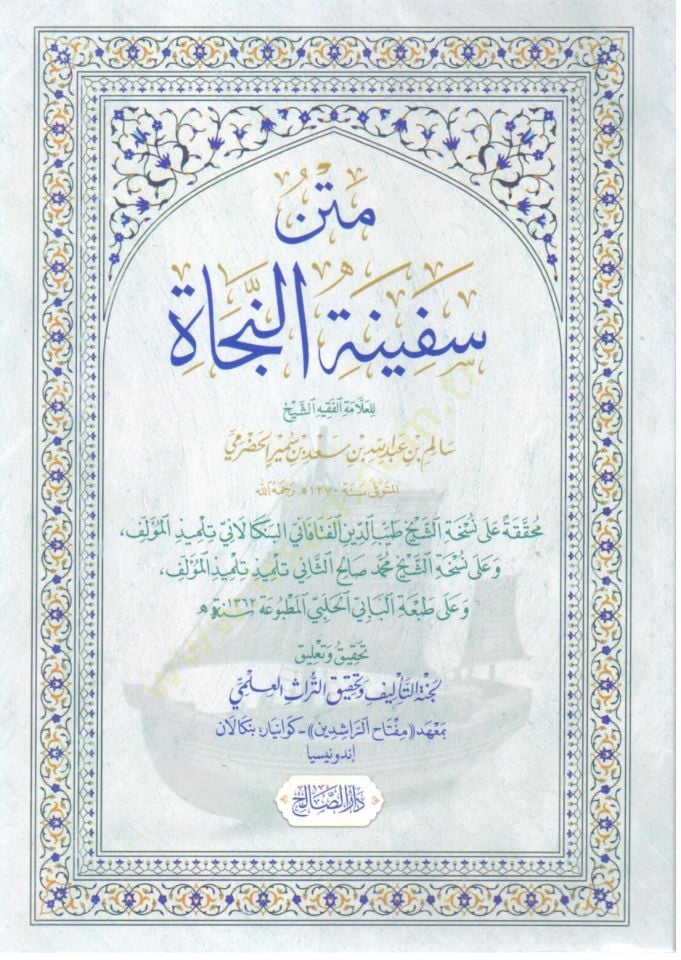 مَتْنُ
سَفِينَةِ النَّجَاةِ
لِلعَلَّامَةِ الفَقِيهِ الشَّيْخِ
سَالِمِ بْنِ عَبْدِ اللهِ بْنِ سَعْدِ بْنِ سُمَيْرٍ الحَضْرَمِيِّ
المتوفى سنة ١٢٧٠ هـ رَحِمَهُ الله
مُحَقَّقَةٌ عَلَى نُسْخَةِ الشَّيْخِ طَيِّبِ الدِّينِ البَنْكَالَانِيِّ تِلْمِيذِ المُؤَلِّفِ،
وَعَلَى نُسْخَةِ الشَّيْخِ مُحَمَّد صَالِح الثَّانِي تِلْمِيذِ تِلْمِيذِ المُؤَلِّفِ،
وَعَلَى طَبْعَةِ البَابِي الحَلَبِي المَطْبُوعَةِ سنة ١٣٦٢ هـ
تَحْقِيقُ وَتَعْلِيقُ
لَجْنَةِ التَّأْلِيفِ وَتَحْقِيقِ التُّرَاثِ العِلْمِيِّ
بِمَعْهَدِ «مِفْتَاحِ الرَّاشِدِينَ» - كوانيار، بنكالان
إندونيسيا
دَارُ الصَّالِحِ